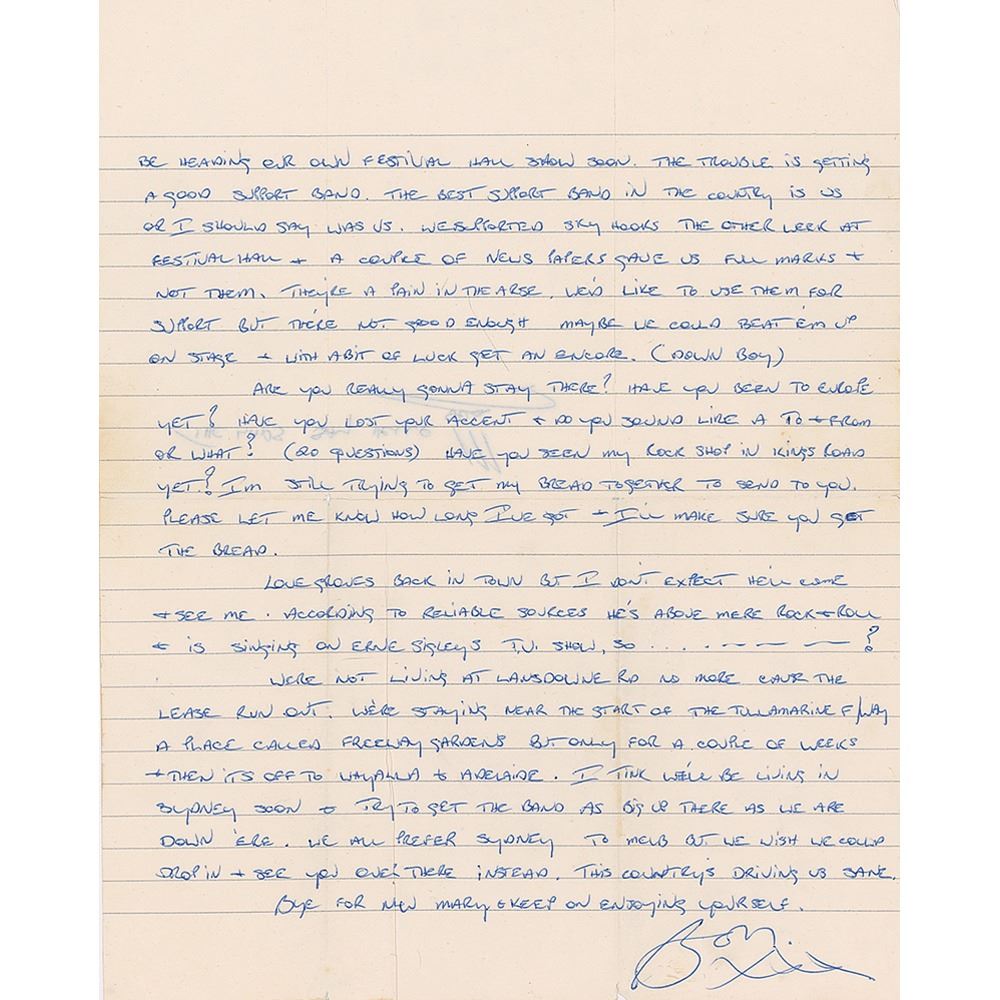 BE HEADING OUR OWN FESTIVAL HALL SHOW SOON. THE TROUBLE IS GETTING
A GOOD SUPPORT BAND. THE BEST SUPPORT BAND IN THE COUNTRY IS US
OR I SHOULD SAY WAS US. WE SUPPORTED SKY HOOKS THE OTHER WEEK AT
FESTIVAL HALL + A COUPLE OF NEWS PAPERS GAVE US FULL MARKS +
NOT THEM. THEY'RE A PAIN IN THE ARSE. WE'D LIKE TO USE THEM FOR
SUPPORT BUT THERE NOT GOOD ENOUGH MAYBE WE COULD BEAT 'EM UP
ON STAGE + WITH A BIT OF LUCK GET AN ENCORE. (DOWN BOY)
ARE YOU REALLY GONNA STAY THERE? HAVE YOU BEEN TO EUROPE
YET? HAVE YOU LOST YOUR ACCENT + DO YOU SOUND LIKE A TO + FROM
OR WHAT? (20 QUESTIONS) HAVE YOU SEEN MY ROCK SHOP IN KINGS ROAD
YET? I'M STILL TRYING TO GET MY BREAD TOGETHER TO SEND TO YOU.
PLEASE LET ME KNOW HOW LONG I'VE GOT + I'LL MAKE SURE YOU GET
THE BREAD.
LOVEGROVES BACK IN TOWN BUT I DON'T EXPECT HE'LL COME
+ SEE ME. ACCORDING TO RELIABLE SOURCES HE'S ABOVE MERE ROCK + ROLL
+ IS SINGING ON ERNE SIGLEYS T.V. SHOW, SO .... - - - - ?
WERE NOT LIVING AT LANSDOWNE RD NO MORE CAUSE THE
LEASE RUN OUT. WE'RE STAYING NEAR THE START OF THE TULLAMARINE F/WAY
A PLACE CALLED FREEWAY GARDENS BUT ONLY FOR A COUPLE OF WEEKS
+ THEN ITS OFF TO WHYALLA & ADELAIDE. I TINK WE'LL BE LIVING IN
SYDNEY SOON & TRY TO GET THE BAND AS BIG UP THERE AS WE ARE
DOWN 'ERE. WE ALL PREFER SYDNEY TO MELB BUT WE WISH WE COULD
DROP IN + SEE YOU OVER THERE INSTEAD. THIS COUNTRY'S DRIVING US SANE.
BYE FOR NOW MARY & KEEP ON ENJOYING YOURSELF.
BON.